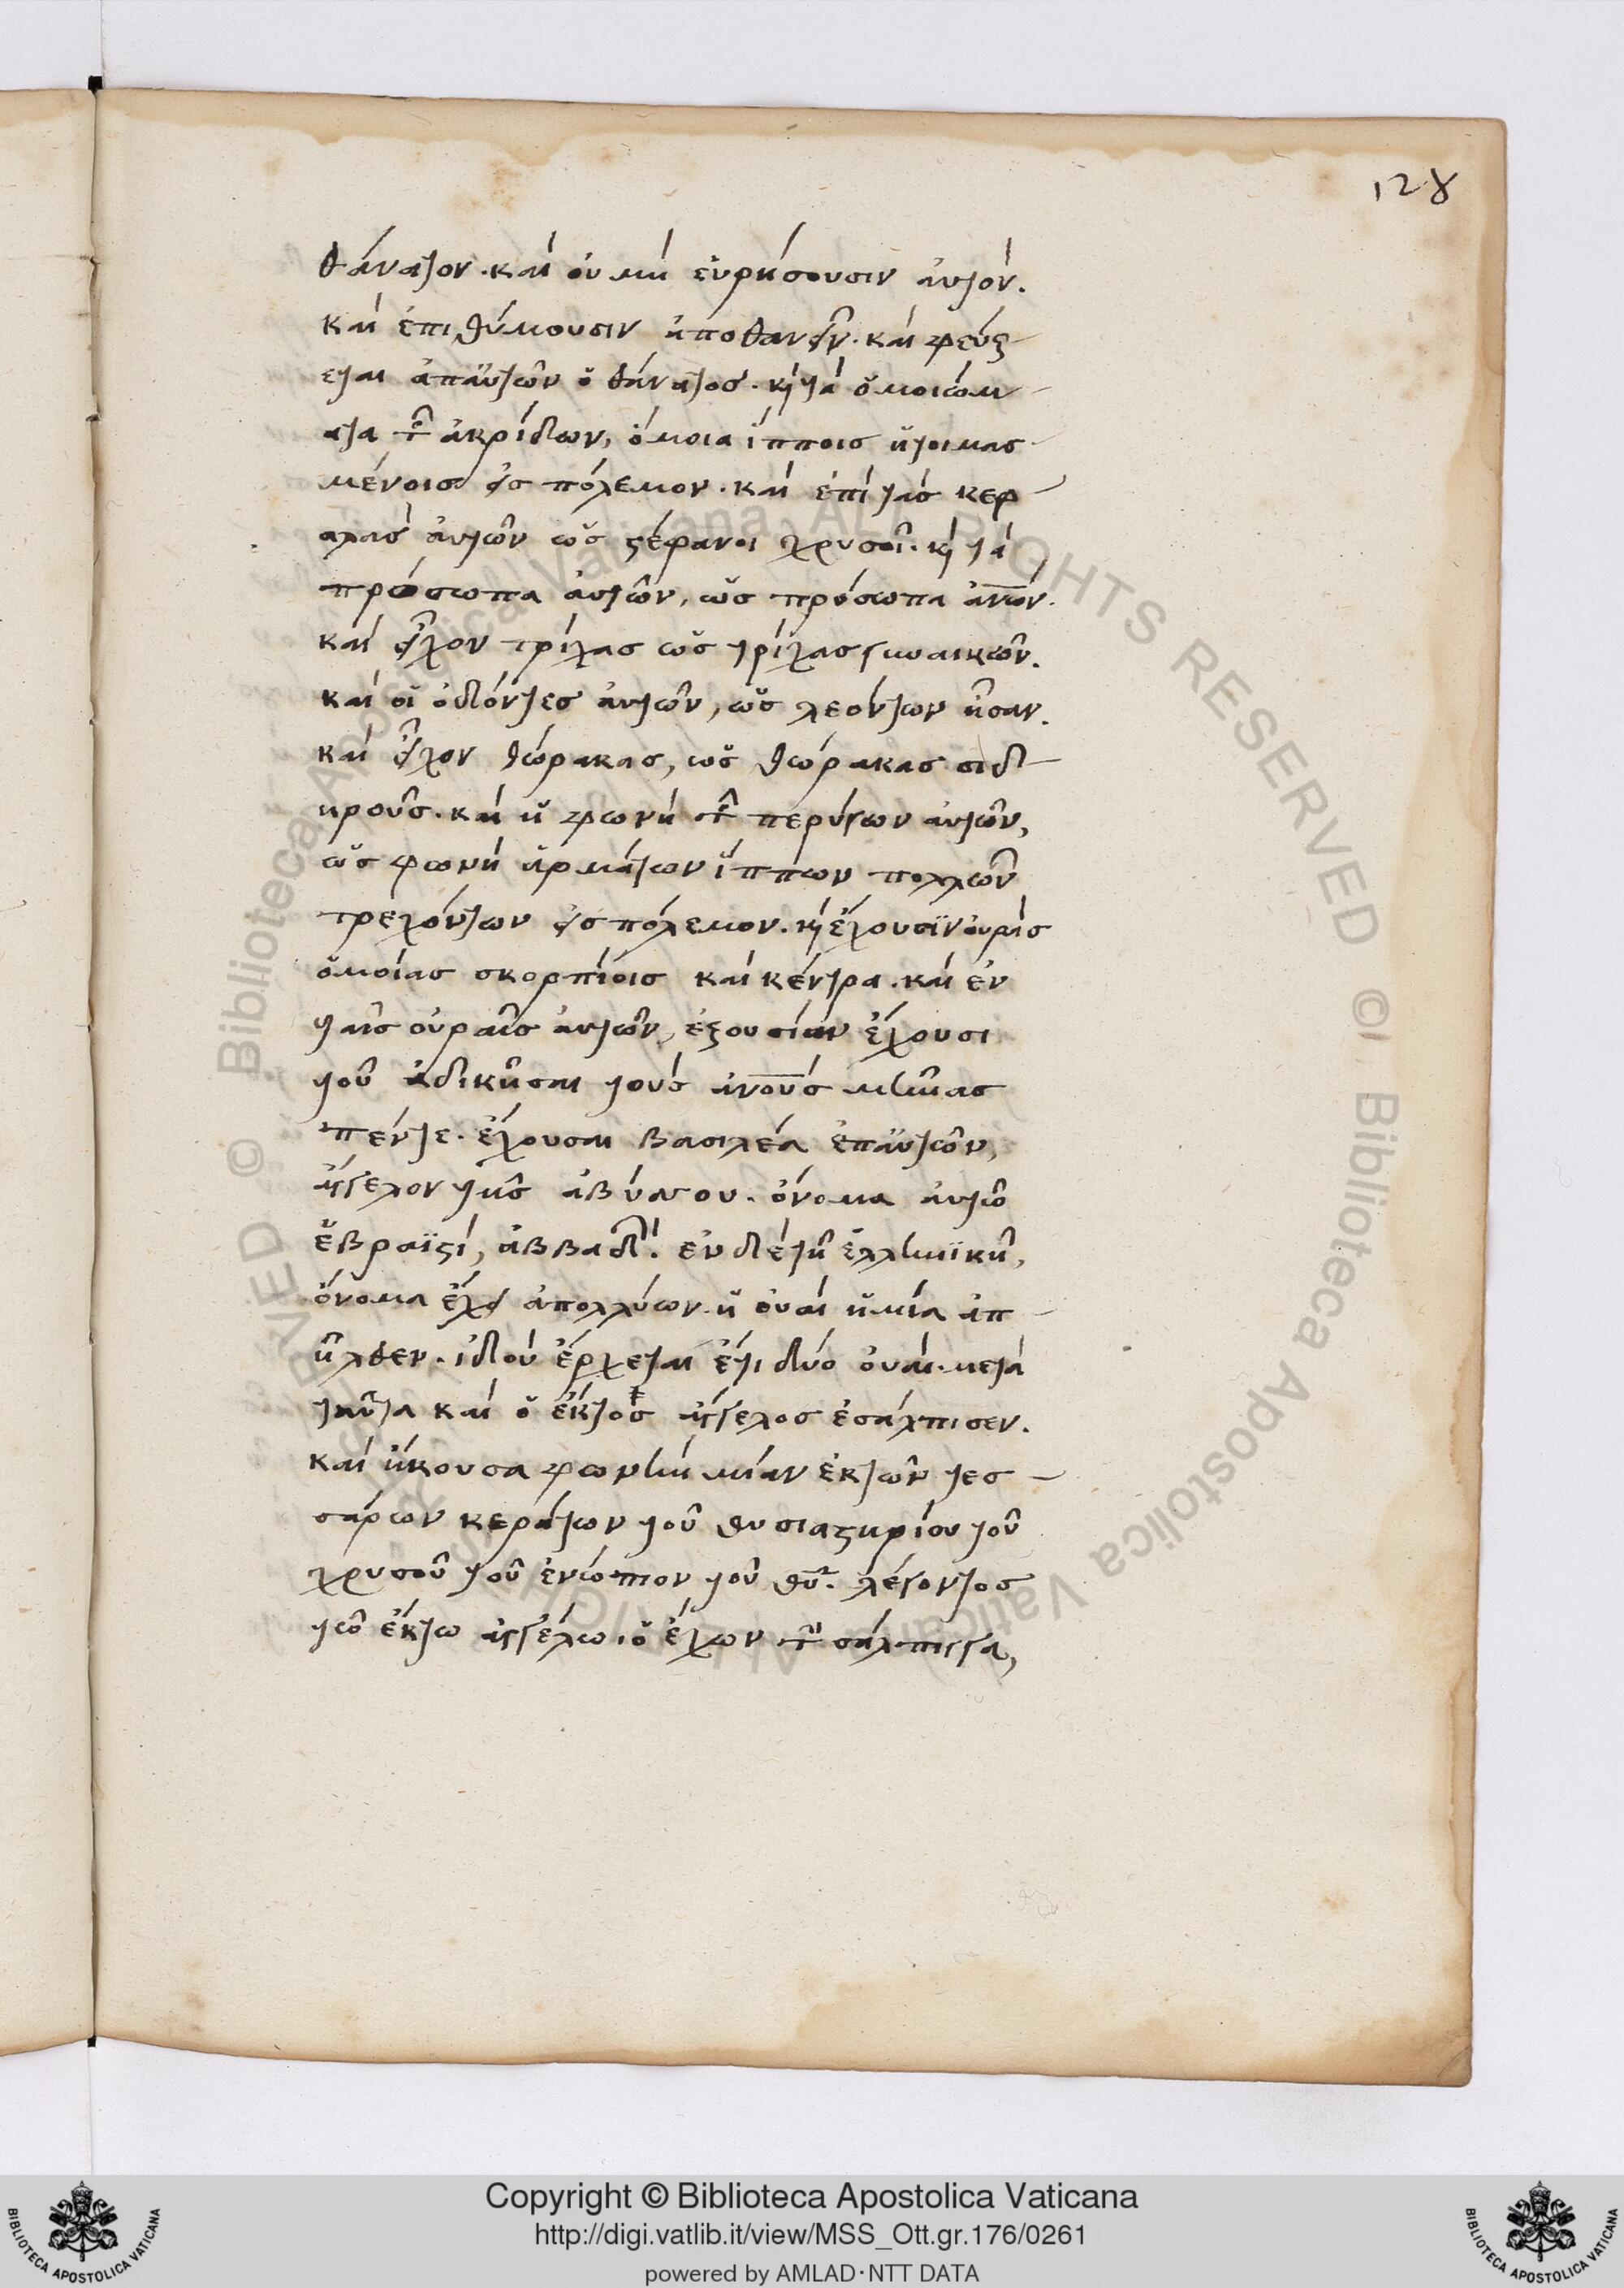 128
θάνατον. καὶ οὐ μὴ εὑρήσουσιν αὐτόν.
καὶ ἐπιθύμουσιν ἀποθανεῖν. καὶ φεύξ
εται ἀπαὐτῶν ὁ θάνατος. κ(αὶ) τὰ ὁμοιώμ
ατα τ(ῶν) ἀκρίδων, ὅμοια ἵπποις ἡτοιμασ
μένοις εἰς πόλεμον. καὶ ἐπὶ τὰς κεφ
αλὰς αὐτῶν ὡς στέφανοι χρυσοῖ. κ(αὶ) τὰ
πρόσωπα αὐτῶν, ὡς πρόσωπα ἀνων.
καὶ εἶχον τρίχας ὡς τρίχας γυναικῶν.
καὶ οἱ ὀδόντες αὐτῶν, ὡς λεόντων ἦσαν.
καὶ εἶχον θώρακας, ὡς θώρακας σιδ
ηροῦς. καὶ ἡ φωνὴ τ(ῶν) περύγων αὐτῶν,
ὡς φωνὴ ἁρμάτων ἵππων πολλῶν
τρεχόντων εἰς πόλεμον. κ(αὶ) ἔχουσϊν οὐρὰς
ὁμοίας σκορπίοις καὶ κέντρα. καὶ ἐν
ταῖς οὐραῖς αὐτῶν, ἐξουσίαν ἔχουσι
τοῦ ἀδικῆσαι τοὺς ἀνους μῆνας
πέντε. ἔχουσαι βασιλέα ἐπαὐτῶν,
ἄγγελον τῆς ἀβύσσου. ὄνομα αὐτῶ
ἑβραϊστί, ἀββαδ(ών). ἐν δὲ τῆ ἑλληνϊκῆ,
ὄνομα ἔχει ἀπολλύων. ἡ οὐαὶ ἡ μία ἀπ
ῆλθεν. ἰδοὺ ἔρχεται ἔτι δύο οὐαί. μετὰ
ταῦτα καὶ ὁ ἕκτος ἄγγελος ἐσάλπισεν.
καὶ ἤκουσα φωνὴν μίαν ἐκτῶν τεσ
σάρων κεράτων τοῦ θυσιαστηρίου τοῦ
χρυσοῦ τοῦ ἐνώπιον τοῦ θυ. λέγοντος
τῶ ἕκτω ἀγγέλω· ὁ ἔχων τ(ὴν) σάλπιγγα,
Copyright © Biblioteca Apostolica Vaticana
http://digi.vatlib.it/view/MSS_Ott.gr.176/0261
powered by AMLAD·NTT DATA
BIBLIOTECA APOSTOLICA VATICANA
BIBLIOTECA APOSTOLICA VATICANA
© Biblioteca Apostolica Vaticana, ALL RIGHTS RESERVED
© Biblioteca Apostolica Vaticana, ALL RIGHTS RESERVED